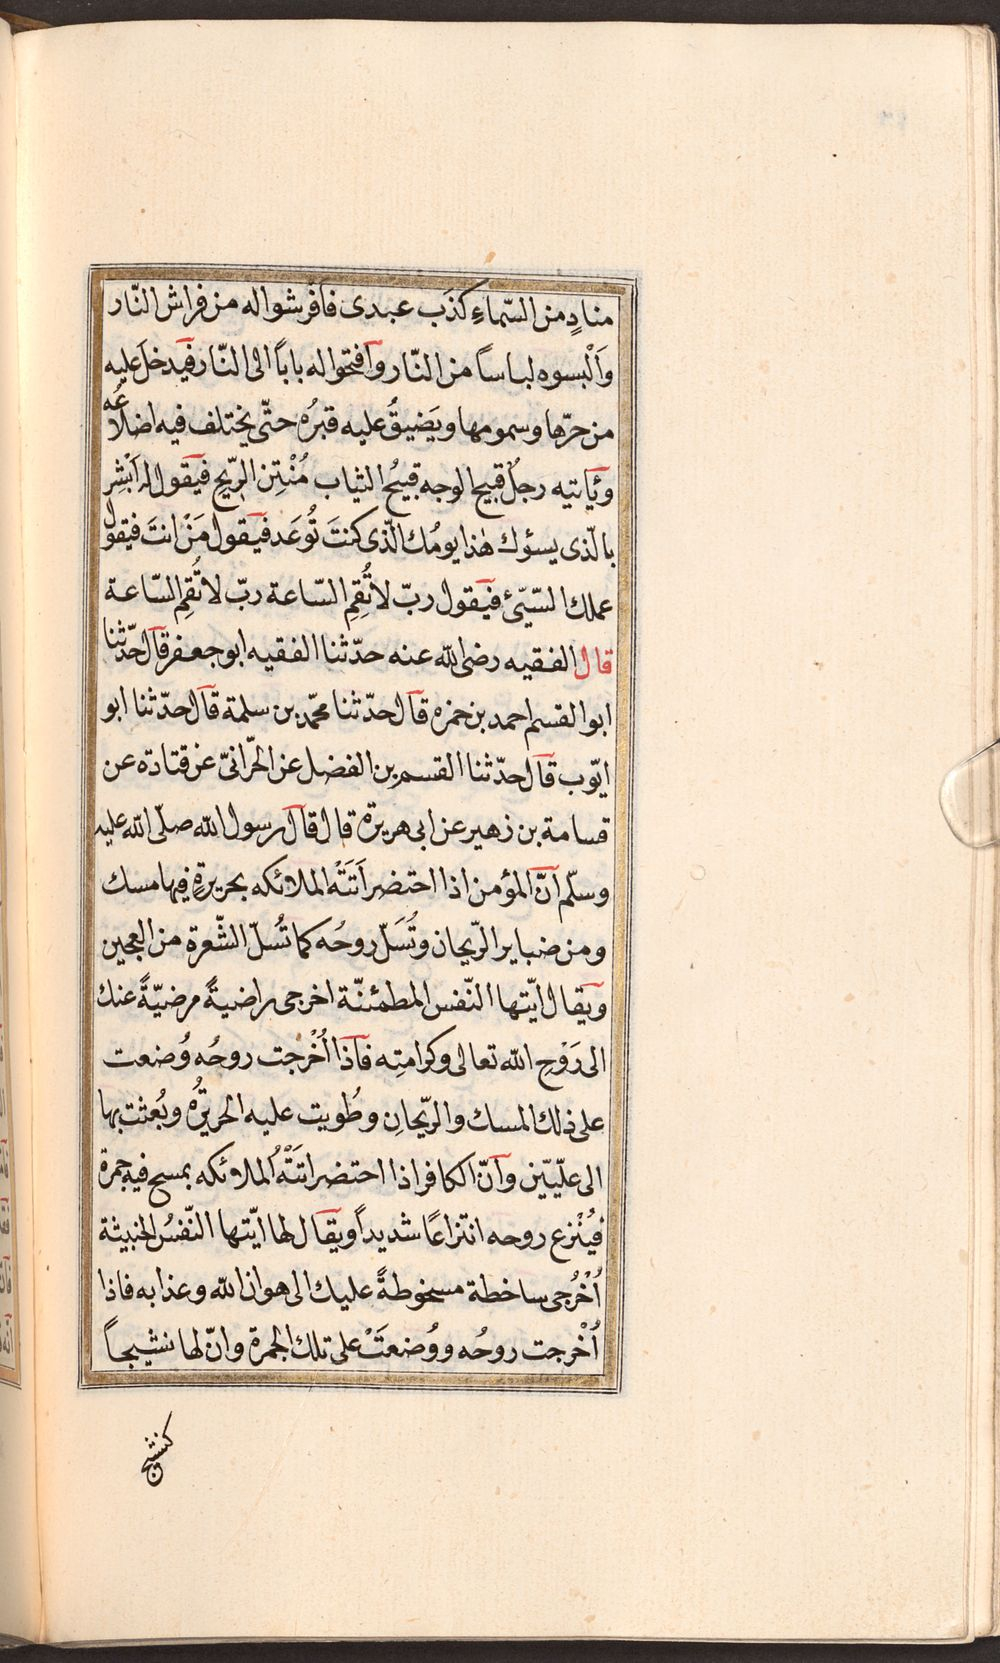 منادٍ من السّماءِ كذَب عبدى فافرشوا له من فراش النّار
وَاَلْبسوه لباساً من النّار وافتحوا له باباً الى النّار فيدخل عليه
من حرّها وسمومها ويَضيقُ عليه قبرُه حتّى يختلف فيه اضلاعُه
ويأتيه رجلٌ قبيح الوجه قبيحُ الثياب مُنْتِن الرّيحِ فيقول له اَبْشِر
بالّذى يسؤك هٰذا يومُك الّذى كنتَ تُوعَد فيقول مَنْ انتَ فيقول
عملك السّيّئ فيقول ربّ لا تُقِمِ السّاعة ربّ لا تُقِمِ السّاعة
قال الفقيه رضى الله عنه حدّثنا الفقيه ابو جعفر قال حدّثنا
ابو القسم احمد بن حمزه قال حدّثنا محمّد بن سلمة قال حدّثنا ابو
ايّوب قال حدّثنا القسم بن الفضل عن الحرّانىّ عن قتادة عن
قسامة بن زهير عن ابى هريرة قال قال رسول الله صلّى الله عليه
وسلّم انّ المؤمن اذا احتضر اَتَتْه الملائكه بحريرةٍ فيها مسك
ومن ضباير الرّيحان وتُسَلّ روحُه كما تُسلّ الشّعرة من العجين
ويقال ايّتها النّفس المطمئنّة اخرجى راضيةً مرضيّةً عنك
الى رَوْحِ الله تعالى وكرامتِه فاذا اُخْرجت روحُه وُضعت
على ذلك المسك والرّيحانِ وطُويت عليه الحريرُة وبُعثت بها
الى علّيّين وانّ الكافر اذا احتضر اتَتْهُ الملائكه بمسح فيه جمرة
فيُنْزع روحه انتزاعًا شديداً ويقال لها ايّتها النّفسُ الخبيثة
اُخْرُجى ساخطة مسخوطةً عليك الى هوان الله وعذابه فاذا
اُخْرجت روحُه ووُضعَتْ على تلك الجمرة وانّ لها نشيجاً
كنشيج